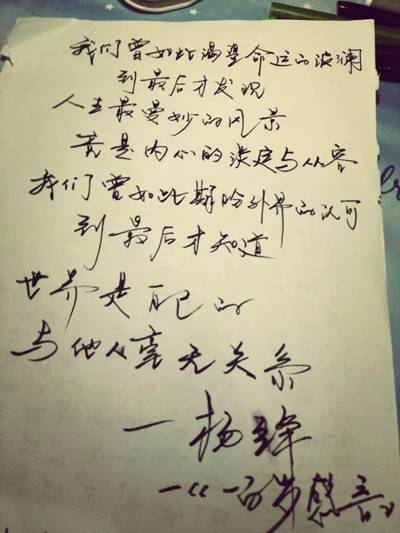 我们曾如此渴望命运的波澜
到最后才发现
人生最曼妙的风景
竟是内心的淡定与从容
我们曾如此期盼外界的认可
到最后才知道
世界是自己的
与他人毫无关系
一杨绛
一《一百岁感言》